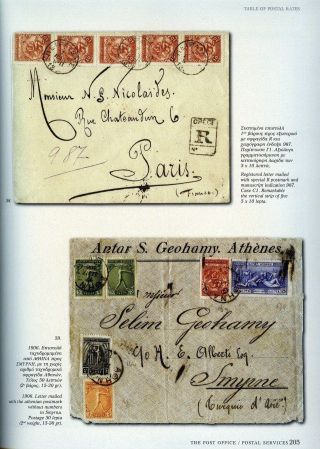 TABLE OF POSTAL RATES
Monsieur N. S. Nicolaides
Rue Chateaudun 6
GRÈCE
R
N°
987
Paris
(France)
Συστημένη επιστολή
2ου βάρους προς εξωτερικό
με σφραγίδα R και
χειρόγραφη ένδειξη 987.
5 x 10 λεπτών.
Registered letter mailed
with special R postmark and
manuscript indication 987.
Case C1. Remarkable
the vertical strip of five
5 x 10 lepta.
38
Antar S. Geohamy. Athènes.
Monsieur
Selim Geohamy
c/o H. E. Alberti Esq
Smyrne
(Turquie d'Asie)
39
1906. Επιστολή
ταχυδρομημένη
από ΑΘΗΝΑ προς
ΣΜΥΡΝΗ, με τη χωρίς
αριθμό ταχυδρομική
σφραγίδα Αθηνών.
Τέλος 50 λεπτών
(2ο βάρος, 15-30 gr).
1906. Letter mailed
with the athenian postmark
without numbers
to Smyrna.
Postage 50 lepta
(2nd weight, 15-30 gr).
THE POST OFFICE / POSTAL SERVICES 205